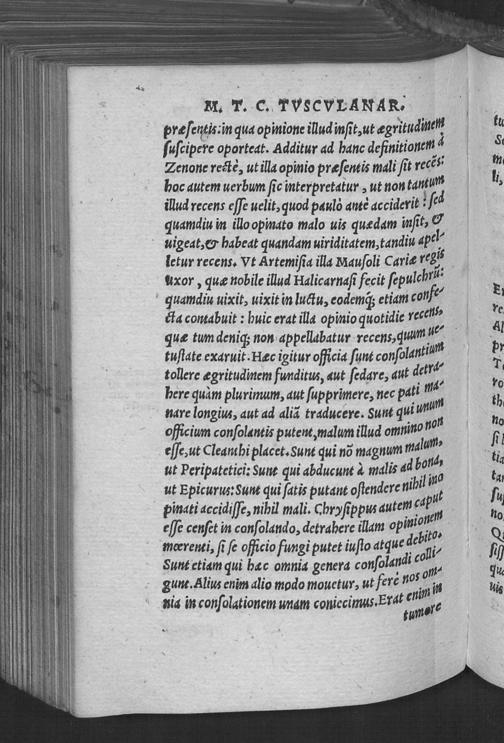 M. T. C. TVSCVLANAR.
præſentis: in qua opinione illud inſit, ut ægritudinem
ſuſcipere oporteat. Additur ad hanc definitionem à
Zenone rectè, ut illa opinio præſentis mali ſit recẽs:
hoc autem uerbum ſic interpretatur, ut non tantum
illud recens eſſe uelit, quod paulò antè acciderit: ſed
quamdiu in illo opinato malo uis quædam inſit, &
uigeat, & habeat quandam uiriditatem, tandiu apel-
letur recens. Vt Artemiſia illa Mauſoli Cariæ regis
uxor, quæ nobile illud Halicarnaſi fecit ſepulchrũ:
quamdiu uixit, uixit in luctu, eodemq́; etiam confe-
cta contabuit: huic erat illa opinio quotidie recens,
quæ tum deniq; non appellabatur recens, quum ue-
tuſtate exaruit. Hæc igitur officia ſunt conſolantium
tollere ægritudinem funditus, aut ſedare, aut detra-
here quàm plurimum, aut ſupprimere, nec pati ma-
nare longius, aut ad aliã traducere. Sunt qui unum
officium conſolantis putent, malum illud omnino non
eſſe, ut Cleanthi placet. Sunt qui nõ magnum malum,
ut Peripatetici: Sunt qui abducunt à malis ad bona,
ut Epicurus: Sunt qui ſatis putant oſtendere nihil ino
pinati accidiſſe, nihil mali. Chryſippus autem caput
eſſe cenſet in conſolando, detrahere illam opinionem
mœrenti, ſi ſe officio fungi putet iuſto atque debito.
Sunt etiam qui hæc omnia genera conſolandi colli-
gunt. Alius enim alio modo mouetur, ut ferè nos om-
nia in conſolationem unam coniecimus. Erat enim in
tumore